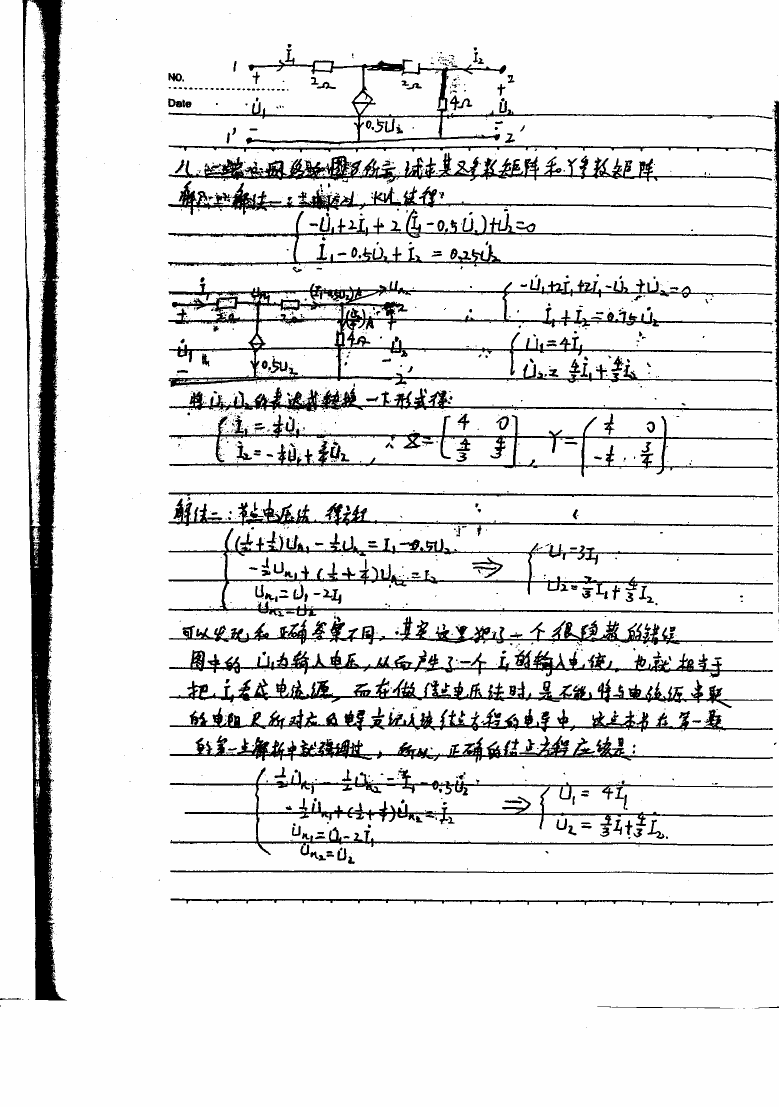 1 İ₁ İ₂ 2
NO.
+ 2Ω 2Ω +
Date U̇₁ 4Ω U̇₂
- 0.5U̇₂ -
1' 2'
八. 二端口网络如图8所示, 试求其Z参数矩阵和Y参数矩阵.
解法一:
-U̇₁+2İ₁+2(İ₁-0.5U̇₂)+U̇₂=0
İ₁-0.5U̇₂+İ₂=0.25U̇₂
İ₁ Un₁ (İ₁-0.5U₂)A Un₂ -U̇₁+2İ₁+2İ₁-U̇₂+U̇₂=0
+ 2Ω 2Ω + 2 İ₁+İ₂=0.75U̇₂
U̇₁ 4Ω U̇₂ ∴ U̇₁=4İ₁
- 0.5U₂ - 2' U̇₂=4/3İ₁+4/3İ₂
将U̇₁, U̇₂的表达式转换一下形式得:
İ₁=¼U̇₁
İ₂=-¼U̇₁+¾U̇₂, ∴ Z=[4 0; 4/3 4/3], Y=[¼ 0; -¼ ¾].
解法二: 节点电压法, 得方程
(½+½)Un₁-½Un₂=I₁-0.5U₂
-½Un₁+(½+¼)Un₂=I₂ ⇒ U₁=3I₁
Un₁=U₁-2I₁ U₂=I₁+4/3I₂
Un₂=U₂
可以发现和正确答案不同, 其实这里犯了一个很隐蔽的错误
图中的U̇₁为输入电压, 从而产生了一个İ₁的输入电流, 也就相当于
把İ₁看成电流源, 而在做结点电压法时, 是不能将与电流源串联
的电阻R所对应的电导支记入该结点方程的电导中, 这点本书在第一题
的第一点解析中就强调过, 所以, 正确的结点方程应该是:
½U̇n₁-½U̇n₂=İ₁-0.5U̇₂
-½U̇n₁+(½+¼)U̇n₂=İ₂ ⇒ U̇₁=4İ₁
U̇n₁=U̇₁-2İ₁ U̇₂=4/3İ₁+4/3İ₂.
U̇n₂=U̇₂